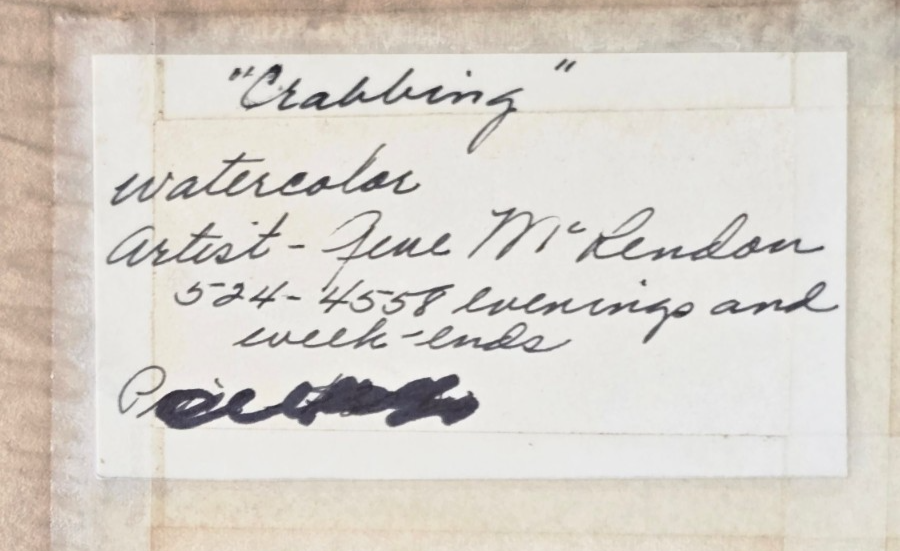 "Crabbing"
watercolor
Artist - Gene McLendon
524-4558 evenings and
week-ends